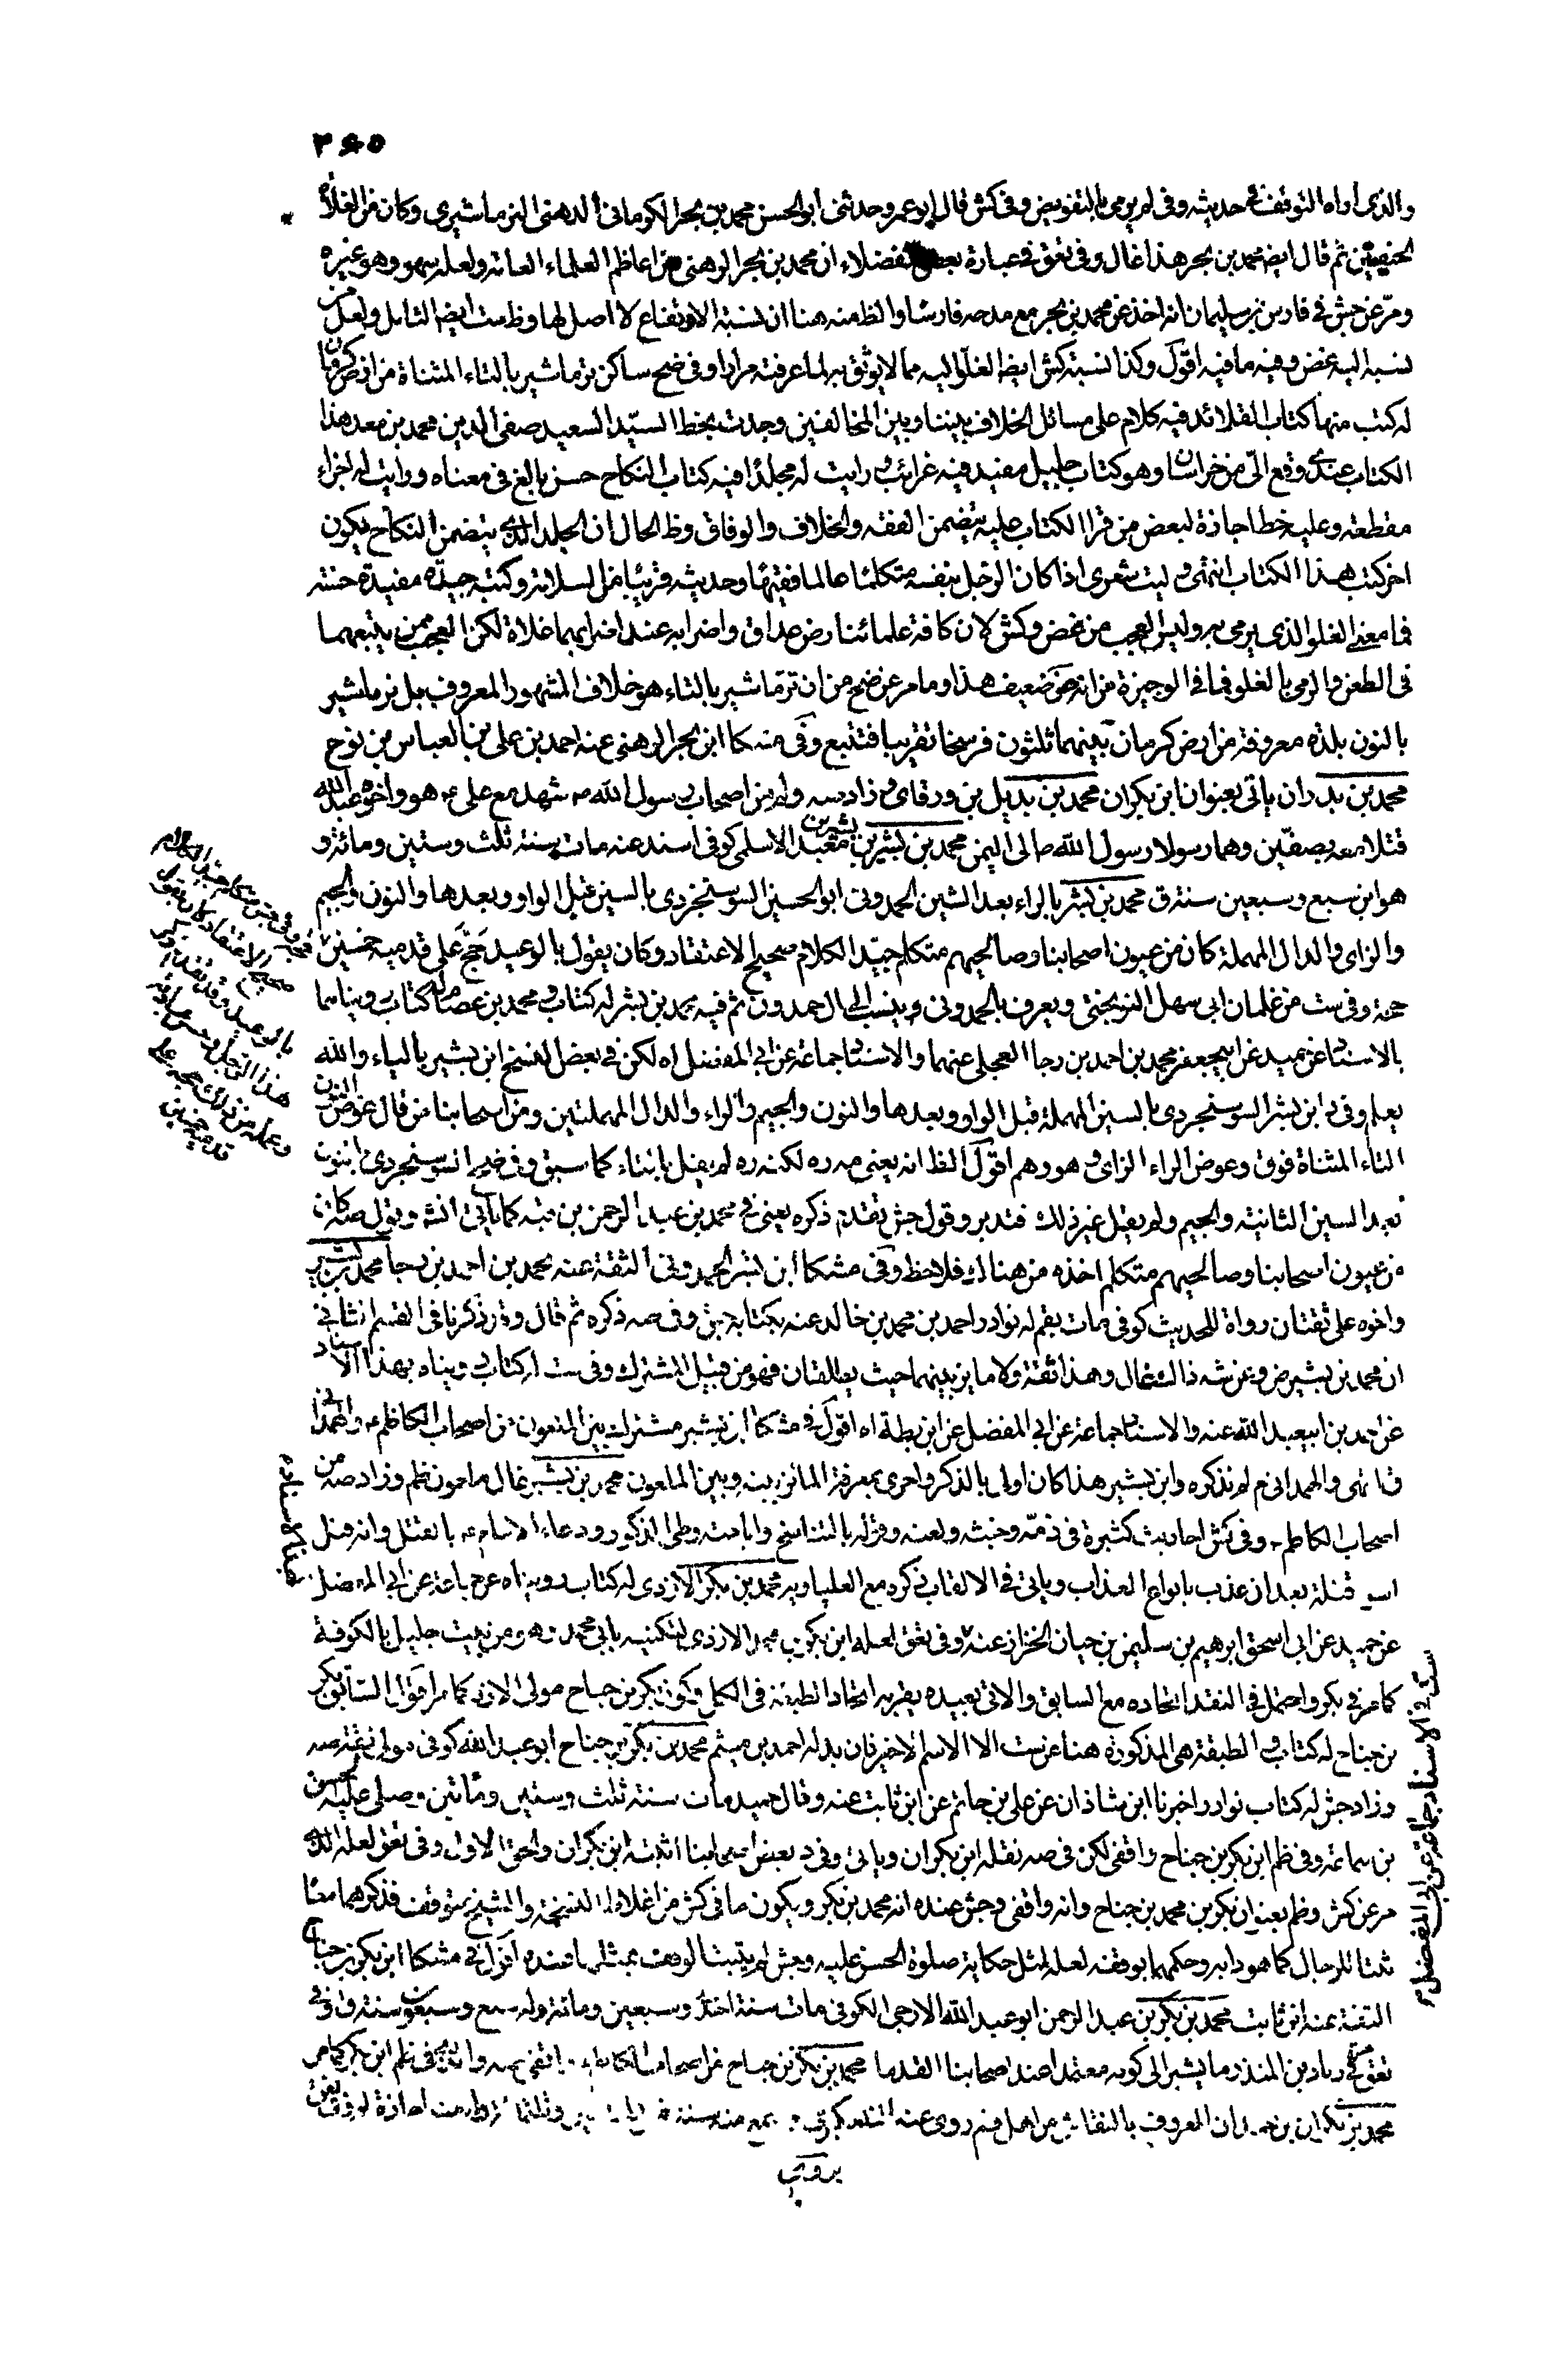 ٣٦٥
والذى اراه التوقف فى حديثه وفى لم يرمى بالتفويض وفى كش قال ابو عمرو حدثنى ابو الحسن محمد بن بحر الكرمانى الدهنى النرماشيرى وكان من الغلاة
الحنقين ثم قال ايضا محمد بن بحر هذا غال وفى تعق فى عبارة بعض الفضلاء ان محمد بن بحر الرهنى من اعاظم العلماء العامة ولعله سهو وهو غيره
ومر عن جش فى فارس بن سليمان انه اخذ عن محمد بن بحر مع مدحه فارسا والظ منه هنا ان نسبة الارتفاع لا اصل لها وظ ست ايضا التامل ولعل من
نسبه اليه غض وفيه ما فيه اقول وكذا نسبة كش ايضا الغلو اليه مما لا يوثق به لما عرفته مرارا وفى ضح ساكن ترماشير بالتاء المثناة من ارض كرمان
له كتب منها كتاب القلائد فيه كلام على مسائل الخلاف بيننا وبين المخالفين وجدت بخط السيد السعيد صفى الدين محمد بن معد هذا
الكتاب عندى وقع الى من خراسان وهو كتاب جليل مفيد فيه غرائب ورايت له مجلدا فيه كتاب النكاح حسن بالغ فى معناه ورايت له اجزاء
مقطعة وعليه خط اجازة لبعض من قرا الكتاب عليه يتضمن الفقه والخلاف والوفاق وظ الحال ان المجلد الذى يتضمن النكاح يكون
احد كتب هذا الكتاب انتهى وليت شعرى اذا كان الرجل بنفسه متكلما عالما فقيها وحديثه قريبا من السلامة وكتبه جيدة مفيدة حسنة
فما معنى الغلو الذى يرمى به وليس العجب من غض وكش لان كافة علمائنا رض صداق واضرابه عند اضرابهما غلاة لكن العجب ممن يتبعهما
فى الطعن والرمى بالغلو فما فى الوجيزة من انه ض ضعيف هذا وما مر عن ضح من ان ترماشير بالتاء هو خلاف المشهور المعروف بل نرماشير
بالنون بلدة معروفة من ارض كرمان بينهما ثلثون فرسخا تقريبا فتتبع وفى مشكا ابن بحر الرهنى عنه احمد بن على بن العباس بن نوح
محمد بن بدران ياتى بعنوان ابن بكران محمد بن بديل بن ورقاى وزاد سه وله من اصحاب رسول الله ص شهد مع على ع هو واخوه عبد الله
قتلا معه بصفين وهما رسولا رسول الله ص الى اليمن محمد بن بشر بن بشير بن معبد الاسلمى كوفى اسند عنه مات سنة ثلث وستين ومائة و
هو ابن سبع وسبعين سنة ق محمد بن بشر بالراء بعد الشين الحمدونى ابو الحسين السوسنجردى بالسين قبل الواو وبعدها والنون والجيم
والزاى والدال المهملة كان من عيون اصحابنا وصالحيهم متكلم جيد الكلام صحيح الاعتقاد وكان يقول بالوعيد حج على قدميه خمسين
حجة وفى ست من غلمان ابى سهل النوبختى ويعرف بالحمدونى وينسب الى ال حمدون ثم فيه محمد بن بشر له كتاب ومحمد بن عصام له كتاب رويناهما
بالاسناد عن حميد عن ابى جعفر محمد بن احمد بن رجا العجلى عنهما والاسناد جماعة عن ابى المفضل اه لكن فى بعض النسخ ابن بشير بالياء والله
يعلم وفى د ابن بشر السوسنجردى بالسين المهملة قبل الواو وبعدها والنون والجيم والراء والدال المهملتين ومن اصحابنا من قال عوض النون
التاء المثناة فوق وعوض الراء الزاى وهو وهم اقول الظ انه يعنى مه ره لكنه ره لم يقل بالتاء كما سبق وفى ضح السوسنجردى بالنون
بعد السين الثانية والجيم ولم يقل غير ذلك فتدبر وقول جش تقدم ذكره يعنى فى محمد بن عبد الرحمن بن قبه كما ياتى انش وقول صه كان
من عيون اصحابنا وصالحيهم متكلم اخذه من هناك فلاحظ وفى مشكا ابن بشر الحمدونى الثقة عنه محمد بن احمد بن رجا محمد بن بشير
واخوه على ثقتان رواة للحديث كوفى مات بقم له نوادر احمد بن محمد بن خالد عنه بكتابه جش وفى صه ذكره ثم قال وقد ذكرنا فى القسم الثانى
ان محمد بن بشير ض وعن شه ذاك غال وهذا ثقة ولا مايز بينهما حيث يطلقان فهو من قبيل المشترك وفى ست له كتاب رويناه بهذا الاسناد
عن احمد بن ابيعبد الله عنه والاسناد جماعة عن ابى المفضل عن ابن بطة اه اقول فى مشكا ابن بشير مشترك بين الملعون من اصحاب الكاظم ع والهمدانى
انتهى والهمدانى م لم نذكره وابن بشير هذا كان اولى بالذكر واحرى بمعرفة المائز بينه وبين الملعون محمد بن بشير غال ملعون ظم وزاد صه من
اصحاب الكاظم ع وفى كش احاديث كثيرة فى ذمه وخبثه ولعنه وقوله بالتناسخ واباحته وطى الذكور ودعاء الامام ع بالقتل وانه قتل
اسوء قتلة بعد ان عذب بانواع العذاب وياتى فى الالقاب ذكره مع العلياويه محمد بن بكر الازدى له كتاب رويناه عن جماعة عن ابى المفضل
عن حميد عن ابى اسحق ابرهيم بن سليمن بن حيان الخزاز عنه وفى تعق لعله ابن بكر بن محمد الازدى لتكنيه بابى محمد وهو من بيت جليل بالكوفة
كما مر فى بكر واحتمل فى النقد اتحاده مع السابق والاتى بعيده يقربه اتحاد الطبقة فى الكل وكون بكر بن جناح مولى الازد كما مر اقول السابق بكر
بن جناح له كتاب والطبقة هى المذكورة هنا عن ست الا الاسم الاخير فان بدله احمد بن ميثم محمد بن بكر بن جناح ابو عبد الله كوفى مولى ثقة صه
وزاد جش له كتاب نوادر اخبرنا ابن شاذان عن على بن حاتم عن ابن ثابت عنه وقال حميد مات سنة ثلث وستين ومائتين وصلى عليه الحسن
بن سماعة وفى ظم ابن بكر بن جناح واقفى لكن فى صه نقله ابن بكران وياتى وفى د بعض اصحابنا اثبته ابن بكران والحق الاول وفى تعق لعله الذى
مر عن كش وظم بعنوان بكر بن محمد بن جناح وانه واقفى وجش عنده انه محمد بن بكر ويكون ما فى كش من اغلاط النسخة والشيخ متوقف فذكرهما معا
تثبتا للرجال كما هو دابه وحكمهما بوقفه لعله لمثل حكاية صلوة الحسن عليه وجش لم يثبت الوقف بمثلها عنده اقول فى مشكا ابن بكر بن جناح
الثقة عنه ابن ثابت محمد بن بكر بن عبد الرحمن ابو عبد الله الارحبى الكوفى مات سنة احدى وسبعين ومائة وله سبع وسبعون سنة ق وفى
تعق مر فى زياد بن المنذر ما يشير الى كونه معتمدا عند اصحابنا القدما محمد بن بكر بن جناح من اصحاب الكاظم ع واقفى صه وفى ظم ابن بكر كما مر
محمد بن بكران بن حمدان المعروف بالنقاش من اهل قم روى عنه التلعكبرى
يروى